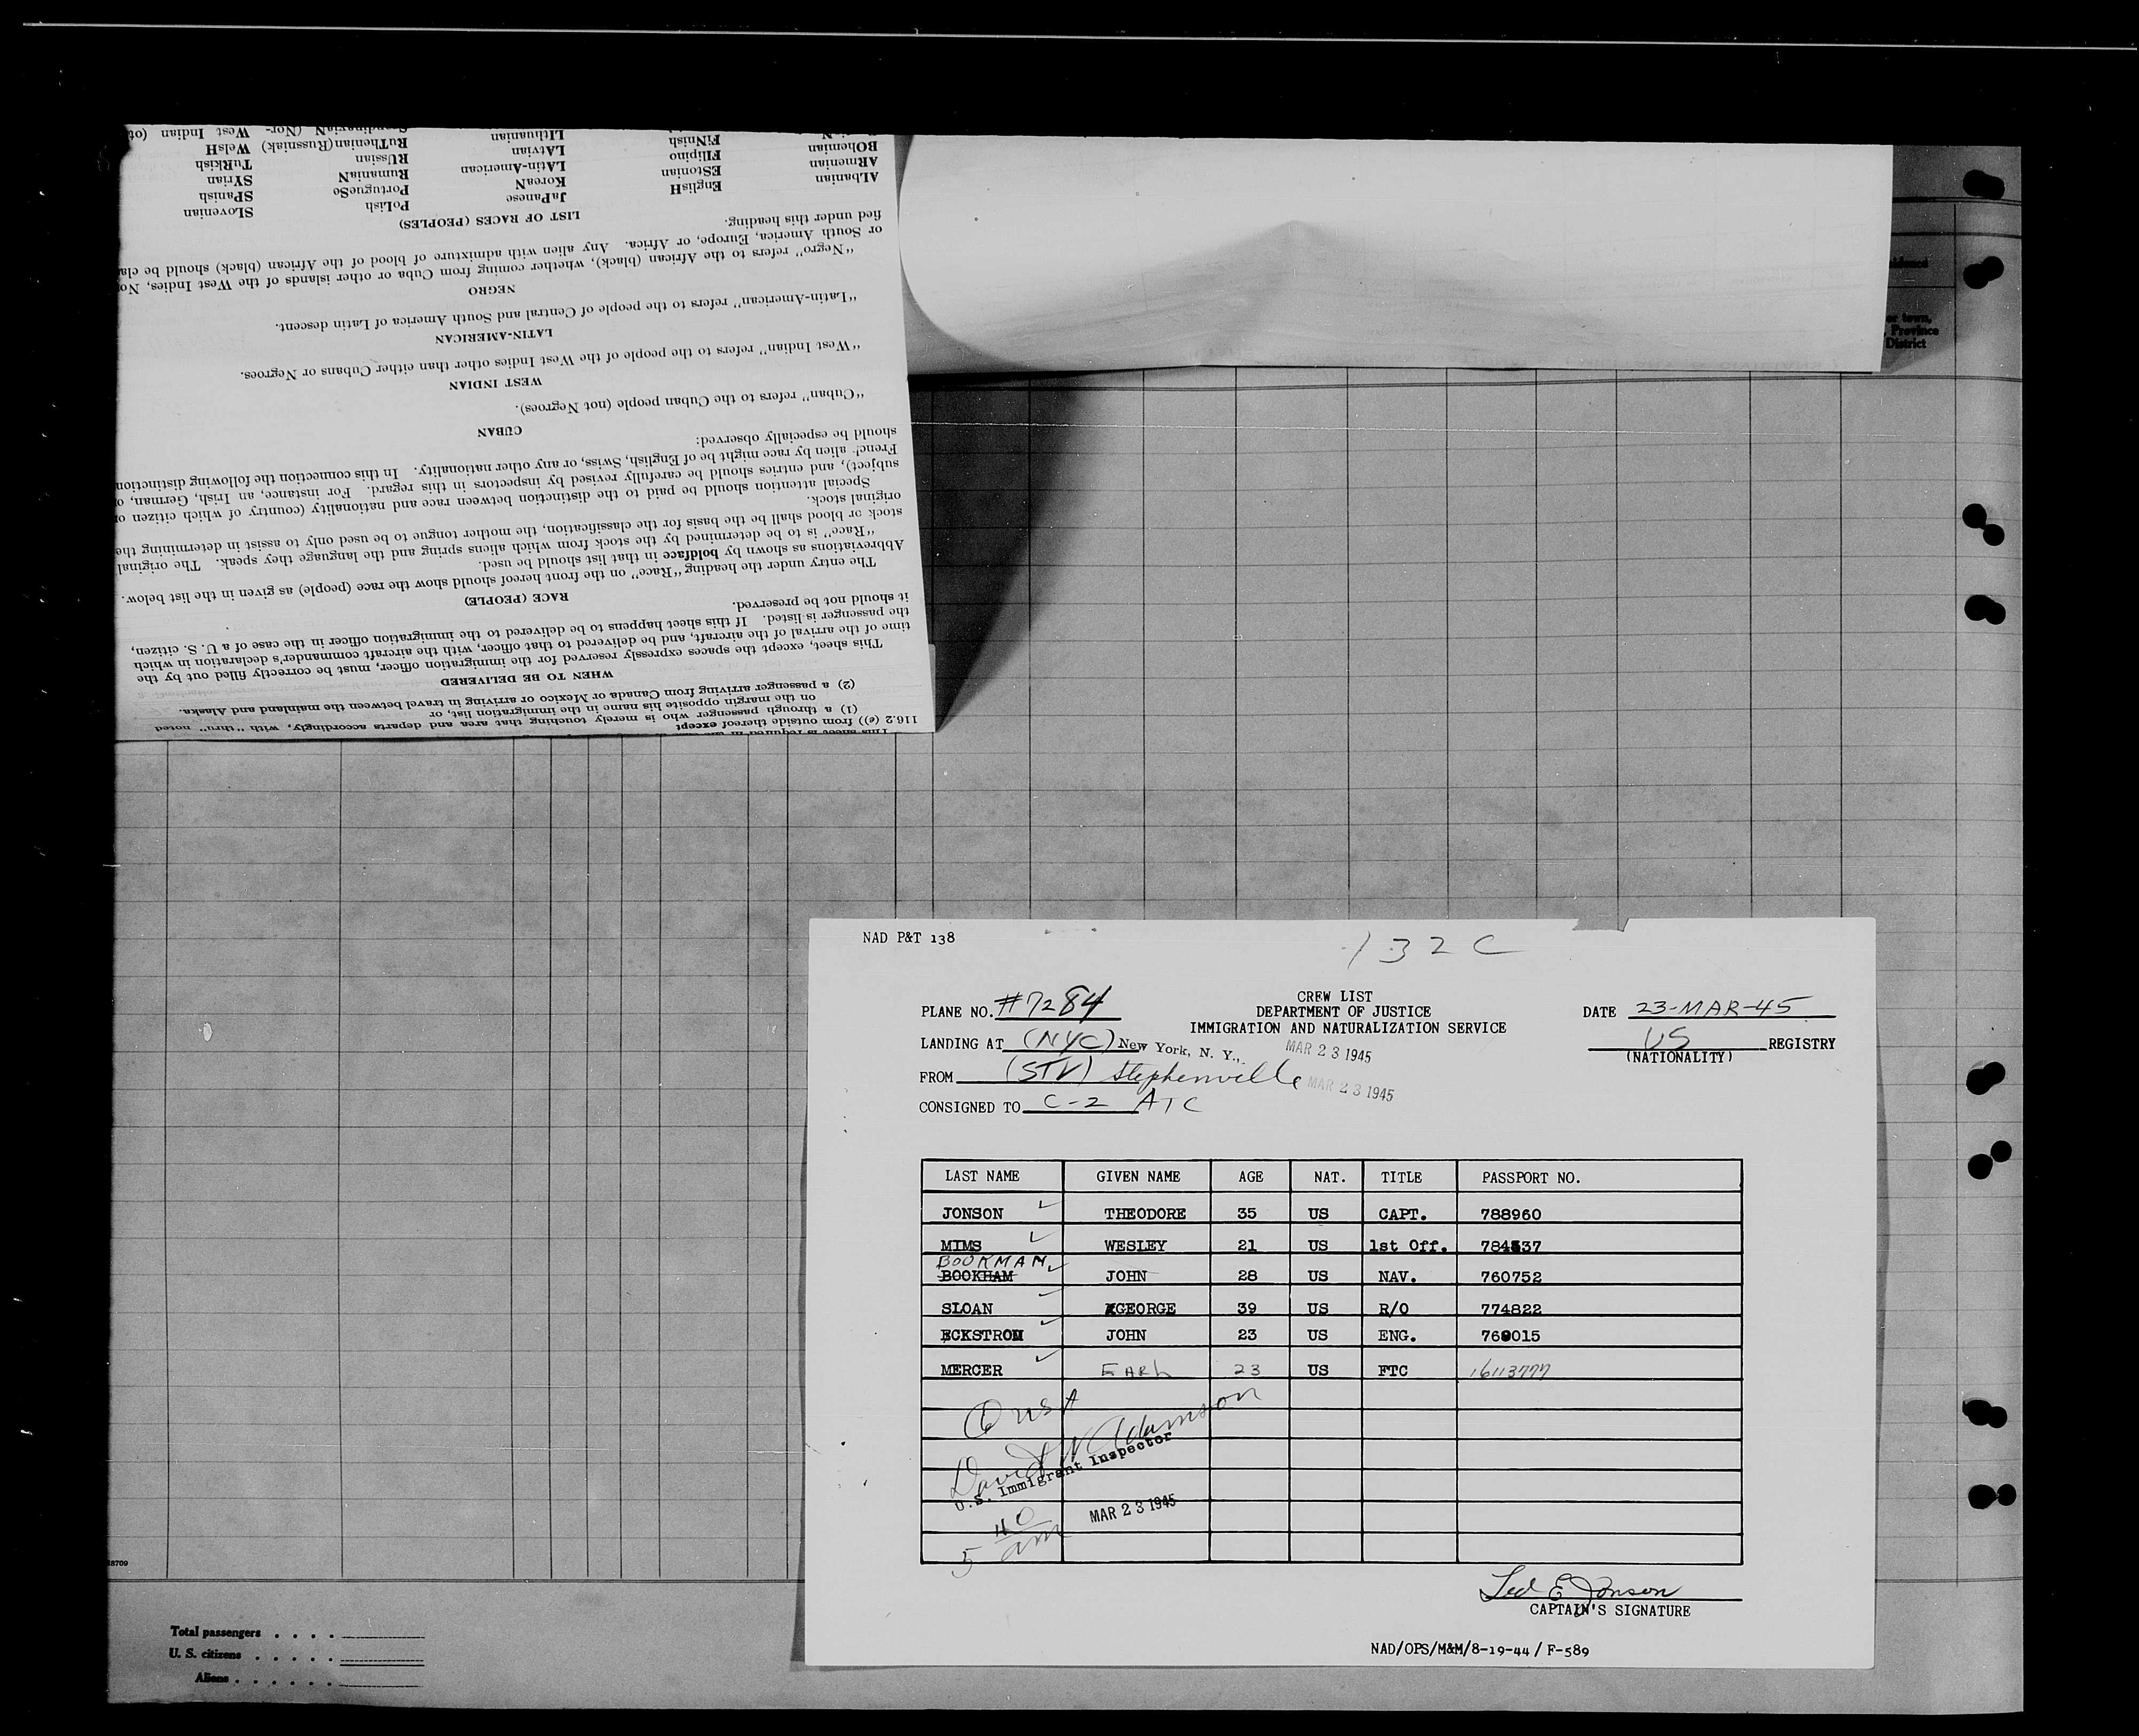 NAD P&T 138
132C
CREW LIST
DEPARTMENT OF JUSTICE
IMMIGRATION AND NATURALIZATION SERVICE
PLANE NO. #7284
DATE 23-MAR-45
LANDING AT (NYC) New York, N. Y., MAR 23 1945
US REGISTRY
(NATIONALITY)
FROM (STV) Stephenville MAR 23 1945
CONSIGNED TO C-2 ATC
LAST NAME GIVEN NAME AGE NAT. TITLE PASSPORT NO.
JONSON THEODORE 35 US CAPT. 788960
MIMS WESLEY 21 US 1st Off. 784537
BOOKMAN
BOOKHAM JOHN 28 US NAV. 760752
SLOAN GEORGE 39 US R/O 774822
ECKSTROM JOHN 23 US ENG. 760015
MERCER EARL 23 US FTC 16113777
6 USA
David W Adamson
U.S. Immigrant Inspector
MAR 23 1945
5 40 am
Ted E Jonson
CAPTAIN'S SIGNATURE
NAD/OPS/M&M/8-19-44 / F-589
116.2 (e)) from outside thereof except
(1) a through passenger who is merely touching that area and departs accordingly, with "thru" noted
on the margin opposite his name in the immigration list, or
(2) a passenger arriving from Canada or Mexico or arriving in travel between the mainland and Alaska.
WHEN TO BE DELIVERED
This sheet, except the spaces expressly reserved for the immigration officer, must be correctly filled out by the
time of the arrival of the aircraft, and be delivered to that officer, with the aircraft commander's declaration in which
the passenger is listed. If this sheet happens to be delivered to the immigration officer in the case of a U. S. citizen,
it should not be preserved.
RACE (PEOPLE)
The entry under the heading "Race" on the front hereof should show the race (people) as given in the list below.
Abbreviations as shown by boldface in that list should be used.
"Race" is to be determined by the stock from which aliens spring and the language they speak. The original
stock or blood shall be the basis for the classification, the mother tongue to be used only to assist in determining the
original stock.
Special attention should be paid to the distinction between race and nationality (country of which citizen or
subject), and entries should be carefully revised by inspectors in this regard. For instance, an Irish, German, or
French alien by race might be of English, Swiss, or any other nationality. In this connection the following distinction
should be especially observed:
CUBAN
"Cuban" refers to the Cuban people (not Negroes).
WEST INDIAN
"West Indian" refers to the people of the West Indies other than either Cubans or Negroes.
LATIN-AMERICAN
"Latin-American" refers to the people of Central and South America of Latin descent.
NEGRO
"Negro" refers to the African (black), whether coming from Cuba or other islands of the West Indies, No
or South America, Europe, or Africa. Any alien with admixture of blood of the African (black) should be clas
fied under this heading.
LIST OF RACES (PEOPLES)
ALbanian EnglisH JaPanese PoLish SLovenian
ARmenian EStonian KoreaN PortugueSe SPanish
BOhemian FIlipino LAtin-American RumaniaN SYrian
FiNnish LAtvian RUssian TuRkish
LIthuanian RuThenian(Russniak) WelsH
ScandinaviaN (Nor- West Indian (ot
er town,
, Province
District
Total passengers . . . .
U. S. citizens . . . . .
Aliens . . . . . .